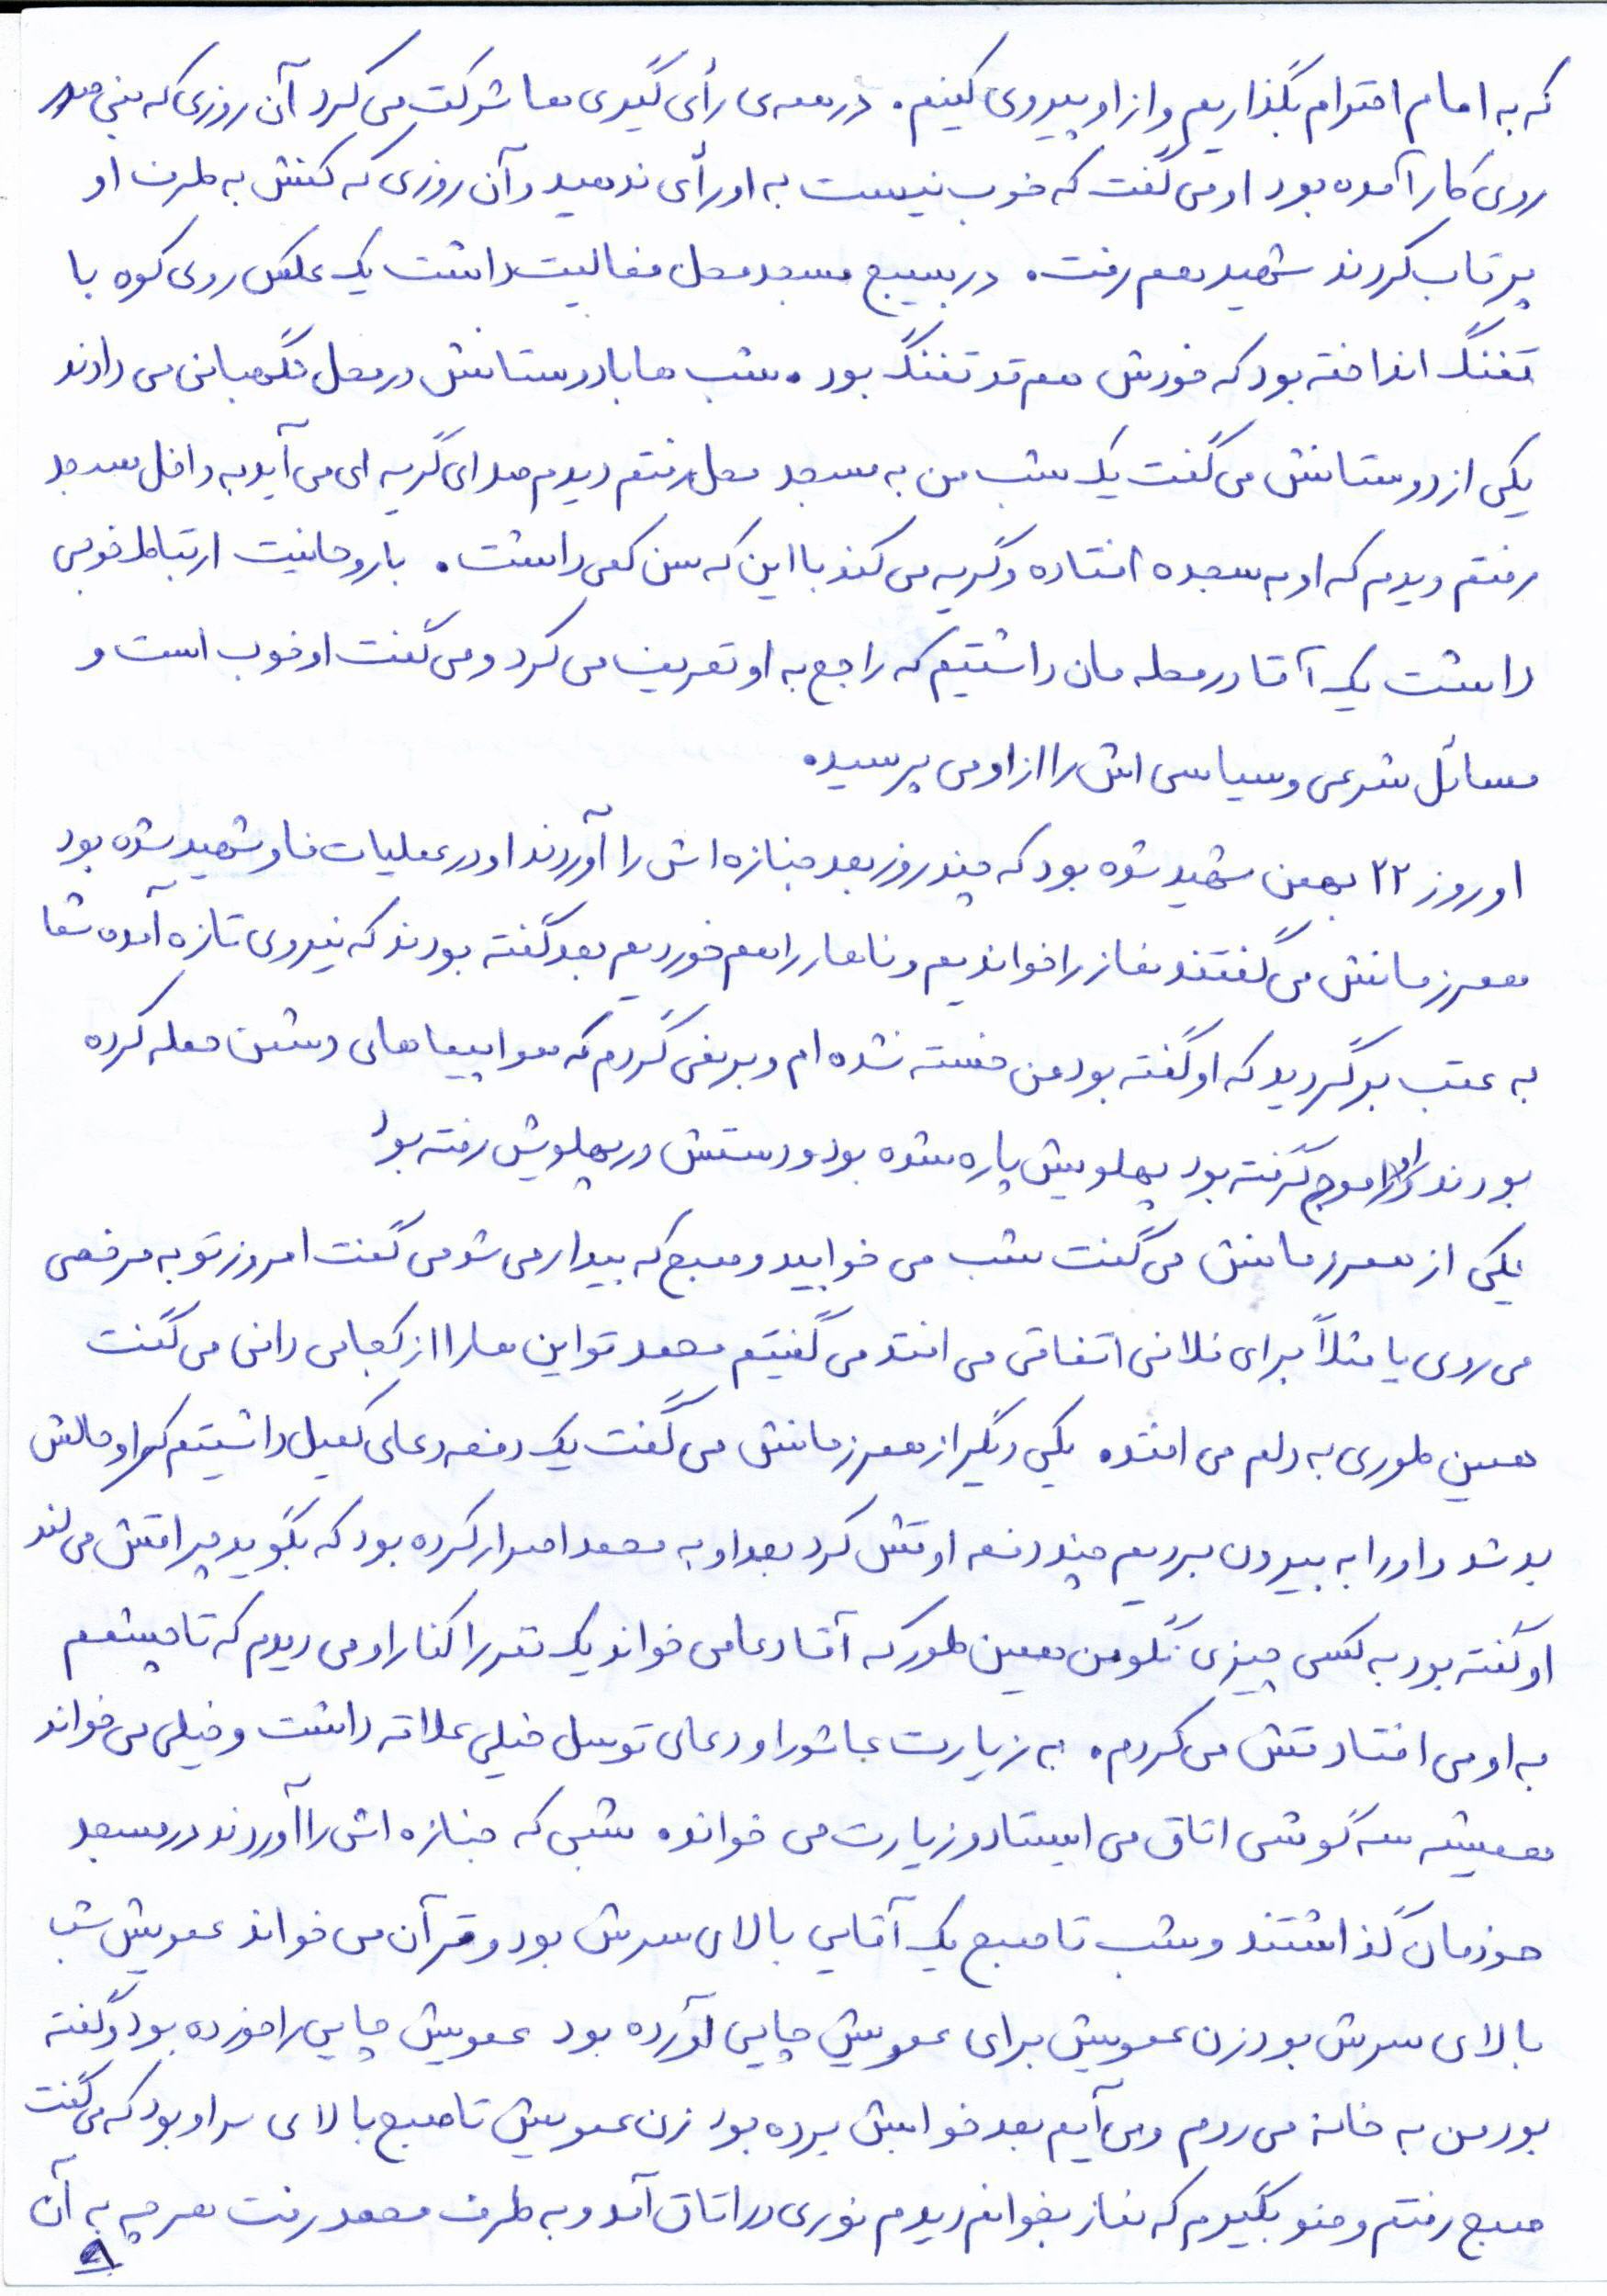 که به امام احترام بگذاریم و از او پیروی کنیم. در همه‌ی رأی گیری ها شرکت می کرد آن روزی که بنی صدر
روی کار آمده بود او می گفت که خوب نیست به او رأی ندهید و آن روزی که کفش به طرف او
پرتاب کردند شهید هم رفت. در بسیج مسجد محل فعالیت داشت یک عکس روی کوه با
تفنگ انداخته بود که خودش هم قد تفنگ بود. شب ها با دوستانش در محل نگهبانی می دادند
یکی از دوستانش می گفت یک شب من به مسجد محل رفتم دیدم صدای گریه ای می آید به داخل مسجد
رفتم دیدم که او به سجده افتاده و گریه می کند با این که سن کمی داشت. با روحانیت ارتباط خوبی
داشت یک آقا در محله مان داشتیم که راجع به او تعریف می کرد و می گفت او خوب است و
مسائل شرعی و سیاسی اش را از او می پرسید.
او روز ۲۲ بهمن شهید شده بود که چند روز بعد جنازه اش را آوردند او در عملیات فاو شهید شده بود
همرزمانش می گفتند نماز را خواندیم و ناهار را هم خوردیم بعد گفته بودند که نیروی تازه آمده شما
به عقب برگردید که او گفته بود من خسته نشده ام و برنمی گردم که هواپیماهای دشمن حمله کرده
بودند و او را موج گرفته بود پهلویش پاره شده بود و دستش در پهلویش رفته بود
یکی از همرزمانش می گفت شب می خوابید و صبح که بیدار می شد می گفت امروز تو به مرخصی
می روی یا مثلاً برای فلانی اتفاقی می افتد می گفتیم محمد تو این ها را از کجا می دانی می گفت
همین طوری به دلم می افتد. یکی دیگر از همرزمانش می گفت یک دفعه دعای کمیل داشتیم که او حالش
بد شد و او را به بیرون بردیم چند دفعه او غش کرد بعد او به محمد اصرار کرده بود که بگوید چرا غش می کند
او گفته بود به کسی چیزی نگو من همین طور که آقا دعا می خواند یک نفر را کنار او می دیدم که تا چشمم
به او می افتاد غش می کردم. به زیارت عاشورا و دعای توسل خیلی علاقه داشت و خیلی می خواند
همیشه سه گوشی اتاق می ایستاد و زیارت می خواند. شبی که جنازه اش را آوردند در مسجد
خودمان گذاشتند و شب تا صبح یک آقایی بالای سرش بود و قرآن می خواند عمویش شب
بالای سرش بود زن عمویش برای عمویش چایی آورده بود عمویش چایی را خورده بود و گفته
بود من به خانه می روم و می آیم بعد خوابش برده بود زن عمویش تا صبح بالای سر او بود که می گفت
صبح رفتم وضو بگیرم که نماز بخوانم دیدم نوری در اتاق آمد و به طرف محمد رفت هر چه به آن